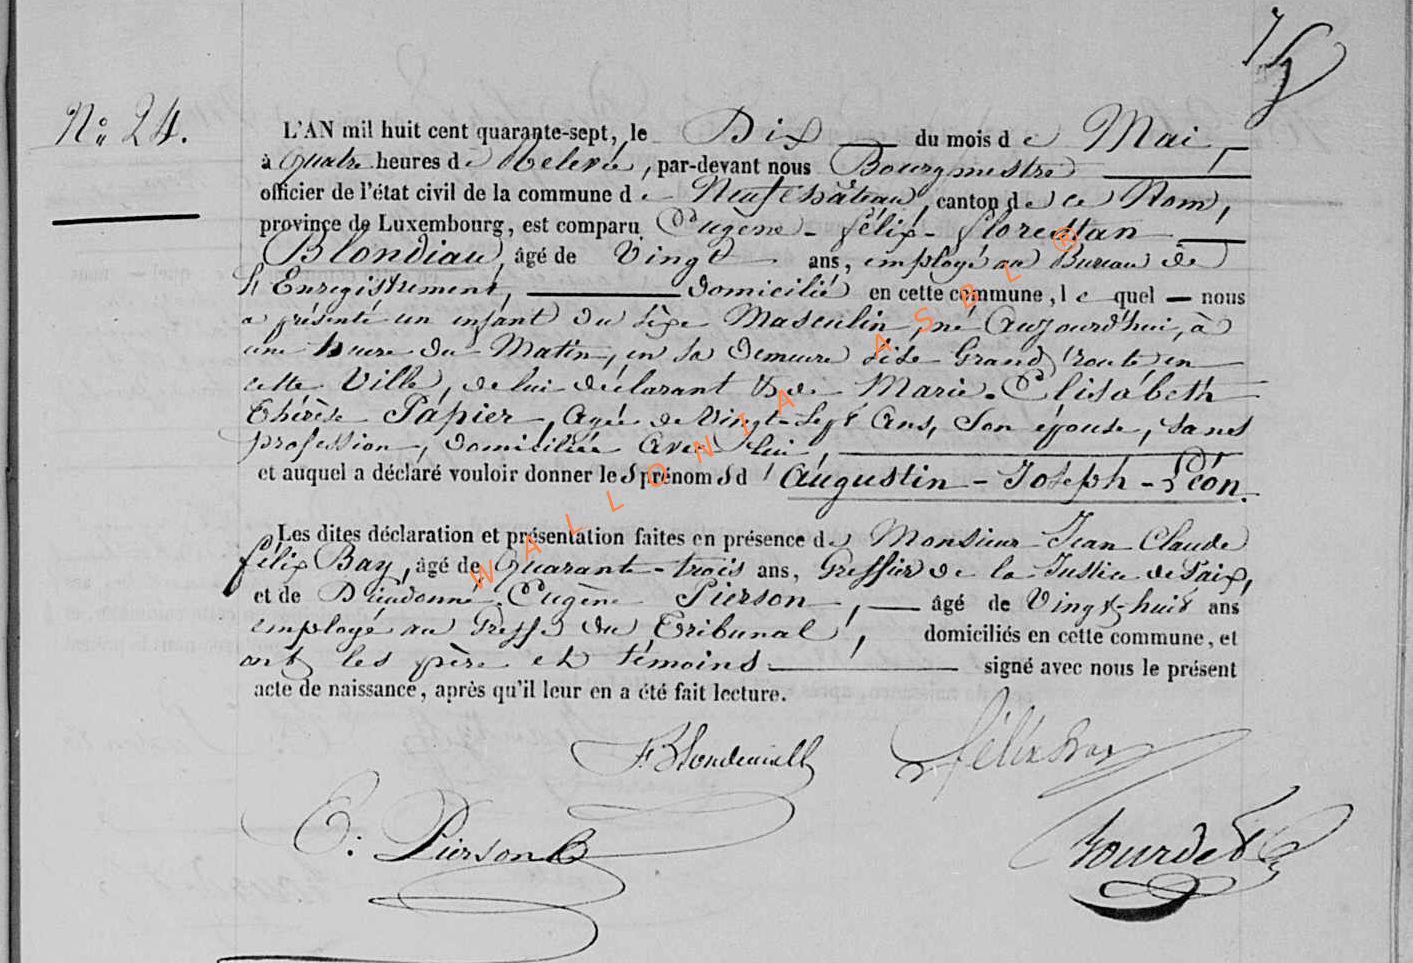 N° 24.
L'AN mil huit cent quarante-sept, le Dix du mois de Mai,
à quatre heures de Relevée, par-devant nous Bourgmestre
officier de l'état civil de la commune de Neufchâteau, canton de ce Nom,
province de Luxembourg, est comparu Eugène-félix-florentan
Blondiau, âgé de Vingt ans, employé au Bureau de
l'Enregistrement, domicilié en cette commune, lequel nous
a présenté un enfant du sèxe Masculin, né Aujourd'hui, à
une heure du Matin, en sa demeure sise Grand'route, en
cette Ville, de lui déclarant & de Marie-Elisabeth
Thérèse Papier, Agée de Vingt-Sept Ans, Son épouse, sans
profession, domiciliée avec lui,
et auquel a déclaré vouloir donner les prénoms d'Augustin-Joseph-Léon.
Les dites déclaration et présentation faites en présence de Monsieur Jean Claude
félix Bay, âgé de Quarante-trois ans, Greffier de la Justice de Paix,
et de Dieudonné Eugène Pierson, âgé de Vingt-huit ans
employé au Greffe du Tribunal, domiciliés en cette commune, et
ont les père et témoins signé avec nous le présent
acte de naissance, après qu'il leur en a été fait lecture.
félix Bay
E: Pierson
Bourdet
WALLONIA ASBL ®